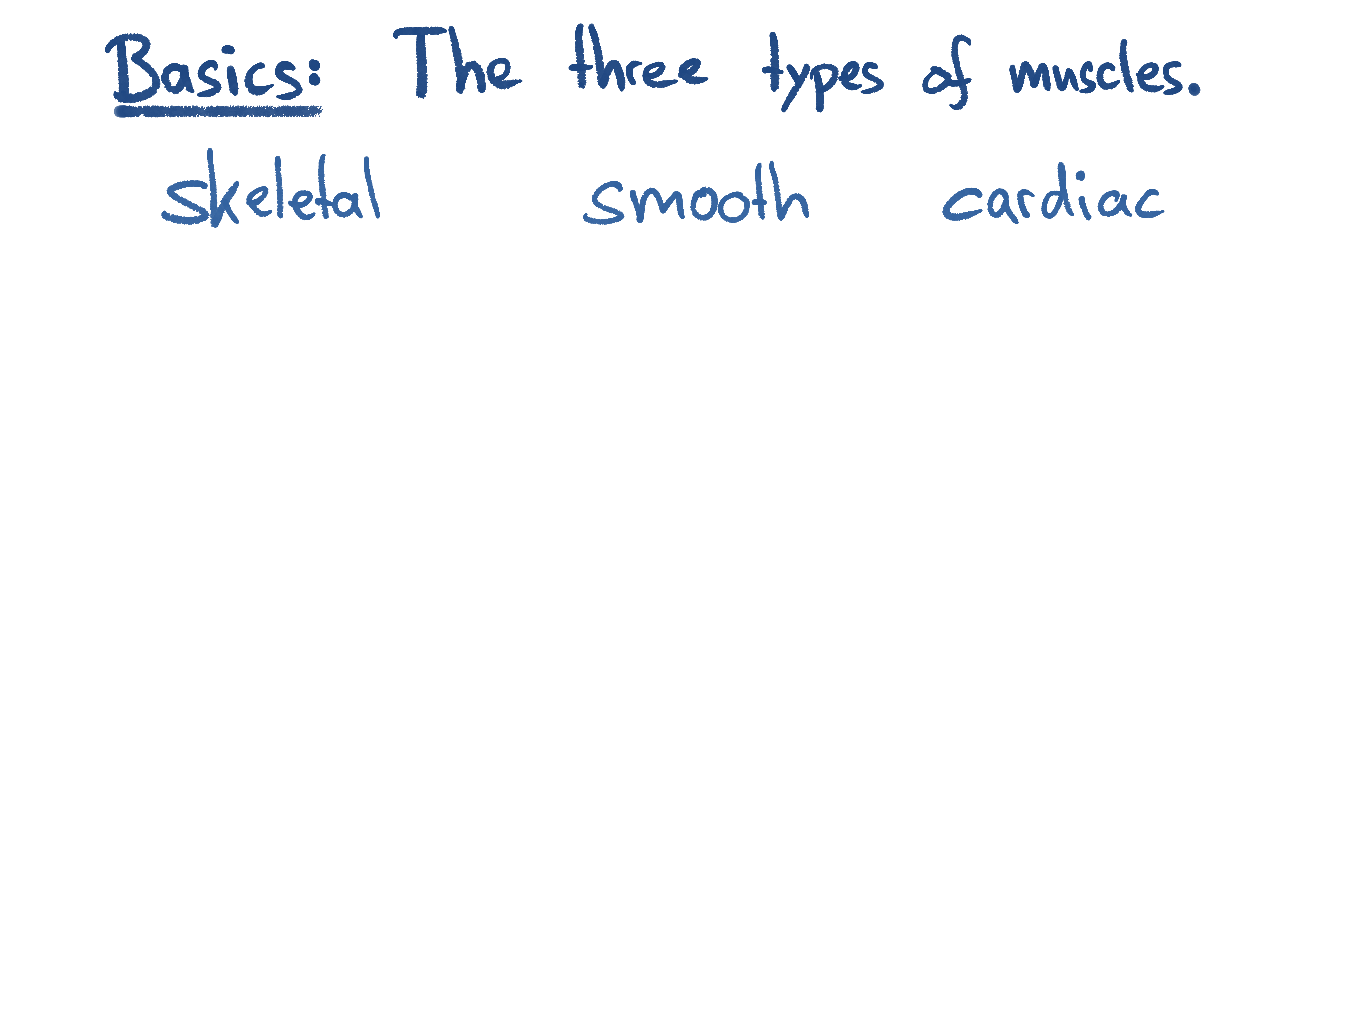 Basics: The three types of muscles.
skeletal smooth cardiac